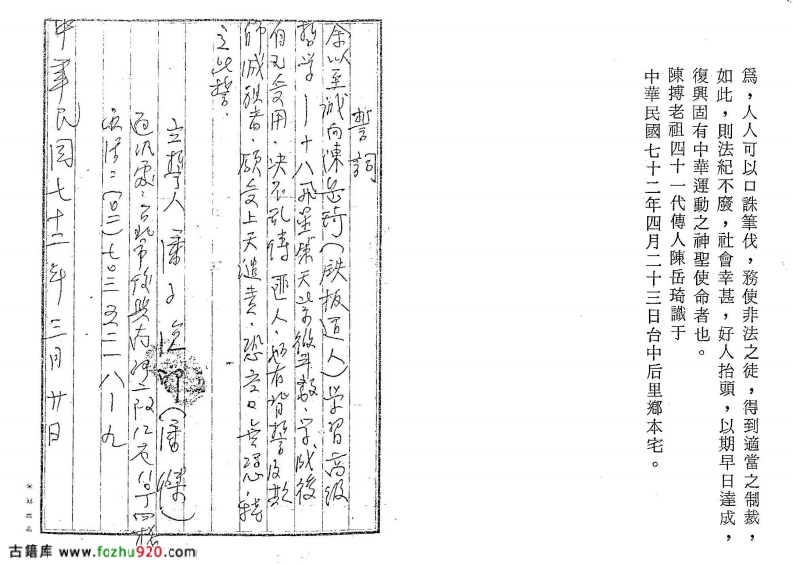 為，人人可以口誅筆伐，務使非法之徒，得到適當之制裁，
如此，則法紀不廢，社會幸甚，好人抬頭，以期早日達成，
復興固有中華運動之神聖使命者也。
陳搏老祖四十一代傳人陳岳琦識于
中華民國七十二年四月二十三日台中后里鄉本宅。
誓詞
余以至誠向陳岳琦（鉄板道人）学習高級
哲学—十八飛星策天紫微斗数，学成後
自己受用，决不乱傳匪人，如有背誓及欺
師滅祖者，願受上天譴責，恐空口無憑，特
立此誓。
立誓人潘子漁（潘傑）
通訊處：台北市
電话：（〇二）七〇三五二一八—九
中華民国七十二年三月廿日
古籍库 www.fozhu920.com